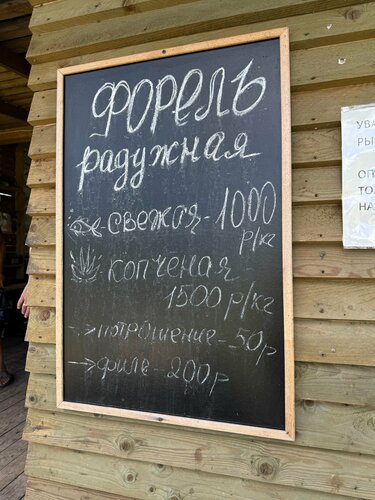 ФОРЕЛЬ
радужная
СВЕЖАЯ - 1000
р/кг
КОПЧЕНАЯ -
1500 р/кг
→ потрошение - 50р
→ филе - 200р
УВА
РЫ
ОП
ТО
НА